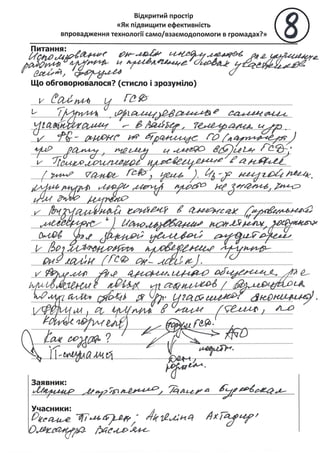 Відкритий простір
«Як підвищити ефективність
впровадження технології само/взаємодопомоги в громадах?»
8
Питання:
Использование онлайн инструментов для укрепления
работы группы и привлечение новых участников
сайт, форумы
Що обговорювалося? (стисло і зрозуміло)
v Сайты у ГСД
v Группы, организованные самими
участниками - в Вайбер, Телеграм и др.
v ФБ - анонс на странице ГО (партнёров)
про дату, тему и место встречи ГСД;
v Психологическое просвещение в анонсе
(что такое ГСД, цель).
культуры люди могут просто не знать, что
им это нужно
v Визуальный контент в анонсах ("правильный
месседж") Использование понятных, доступных
слов для данной целевой аудитории
v Возможность проведения группы
онлайн (ГСД он-лайн).
v Форумы для анонимного общения, для
привлечения новых участников (возможность
анонимно).
v Форум, а группы в нём (темы, по
категориям)
Как создать?
форум ГСД
IT-специалист
Заявник:
Марина Мартыненко, Татьяна Бурковская
Учасники:
Оксана Ангеліна
Олександра